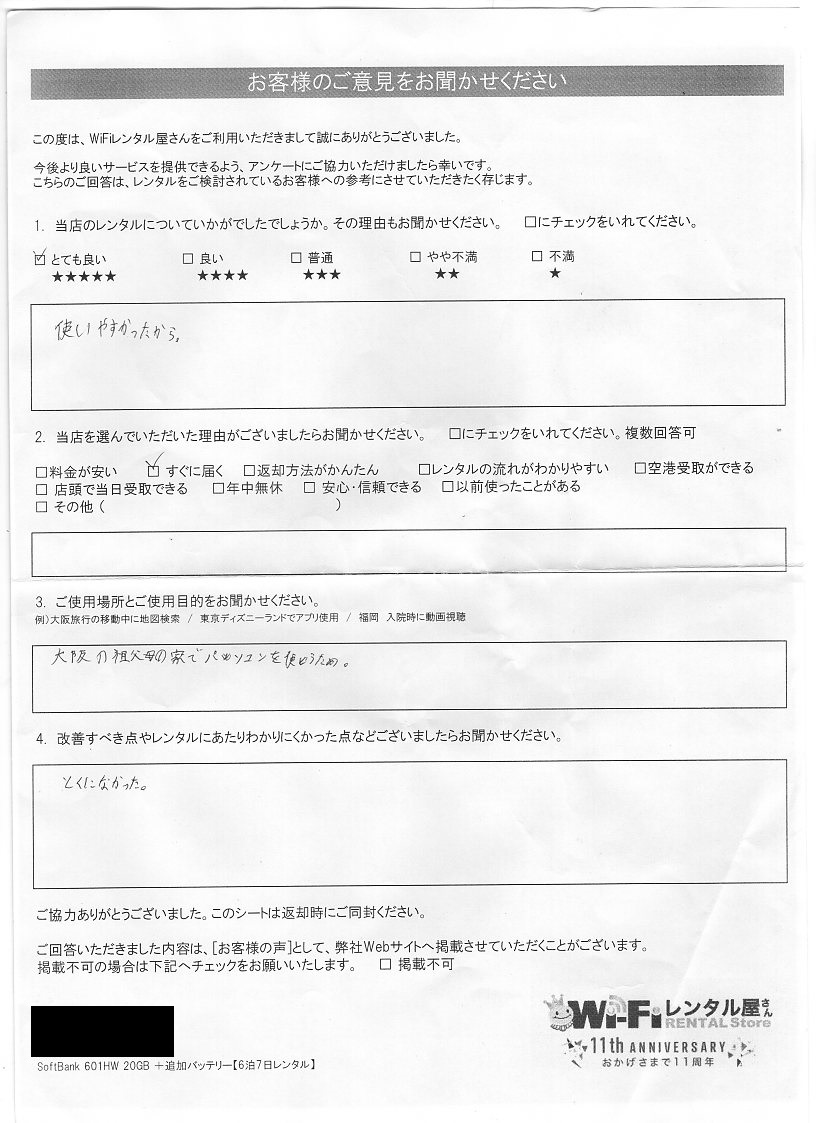 お客様のご意見をお聞かせください
この度は、WiFiレンタル屋さんをご利用いただきまして誠にありがとうございました。
今後より良いサービスを提供できるよう、アンケートにご協力いただけましたら幸いです。
こちらのご回答は、レンタルをご検討されているお客様への参考にさせていただきたく存じます。
1. 当店のレンタルについていかがでしたでしょうか。その理由もお聞かせください。 □にチェックをいれてください。
☑ とても良い □ 良い □ 普通 □ やや不満 □ 不満
★★★★★ ★★★★ ★★★ ★★ ★
使いやすかったから。
2. 当店を選んでいただいた理由がございましたらお聞かせください。 □にチェックをいれてください。複数回答可
□料金が安い ☑ すぐに届く □返却方法がかんたん □レンタルの流れがわかりやすい □空港受取ができる
□ 店頭で当日受取できる □年中無休 □ 安心・信頼できる □以前使ったことがある
□ その他 ( )
3. ご使用場所とご使用目的をお聞かせください。
例)大阪旅行の移動中に地図検索 / 東京ディズニーランドでアプリ使用 / 福岡 入院時に動画視聴
大阪の祖父母の家でパソコンを使うため。
4. 改善すべき点やレンタルにあたりわかりにくかった点などございましたらお聞かせください。
とくになかった。
ご協力ありがとうございました。このシートは返却時にご同封ください。
ご回答いただきました内容は、[お客様の声]として、弊社Webサイトへ掲載させていただくことがございます。
掲載不可の場合は下記へチェックをお願いいたします。 □ 掲載不可
Wi-Fiレンタル屋さん
RENTAL Store
11th ANNIVERSARY
おかげさまで11周年
SoftBank 601HW 20GB +追加バッテリー【6泊7日レンタル】